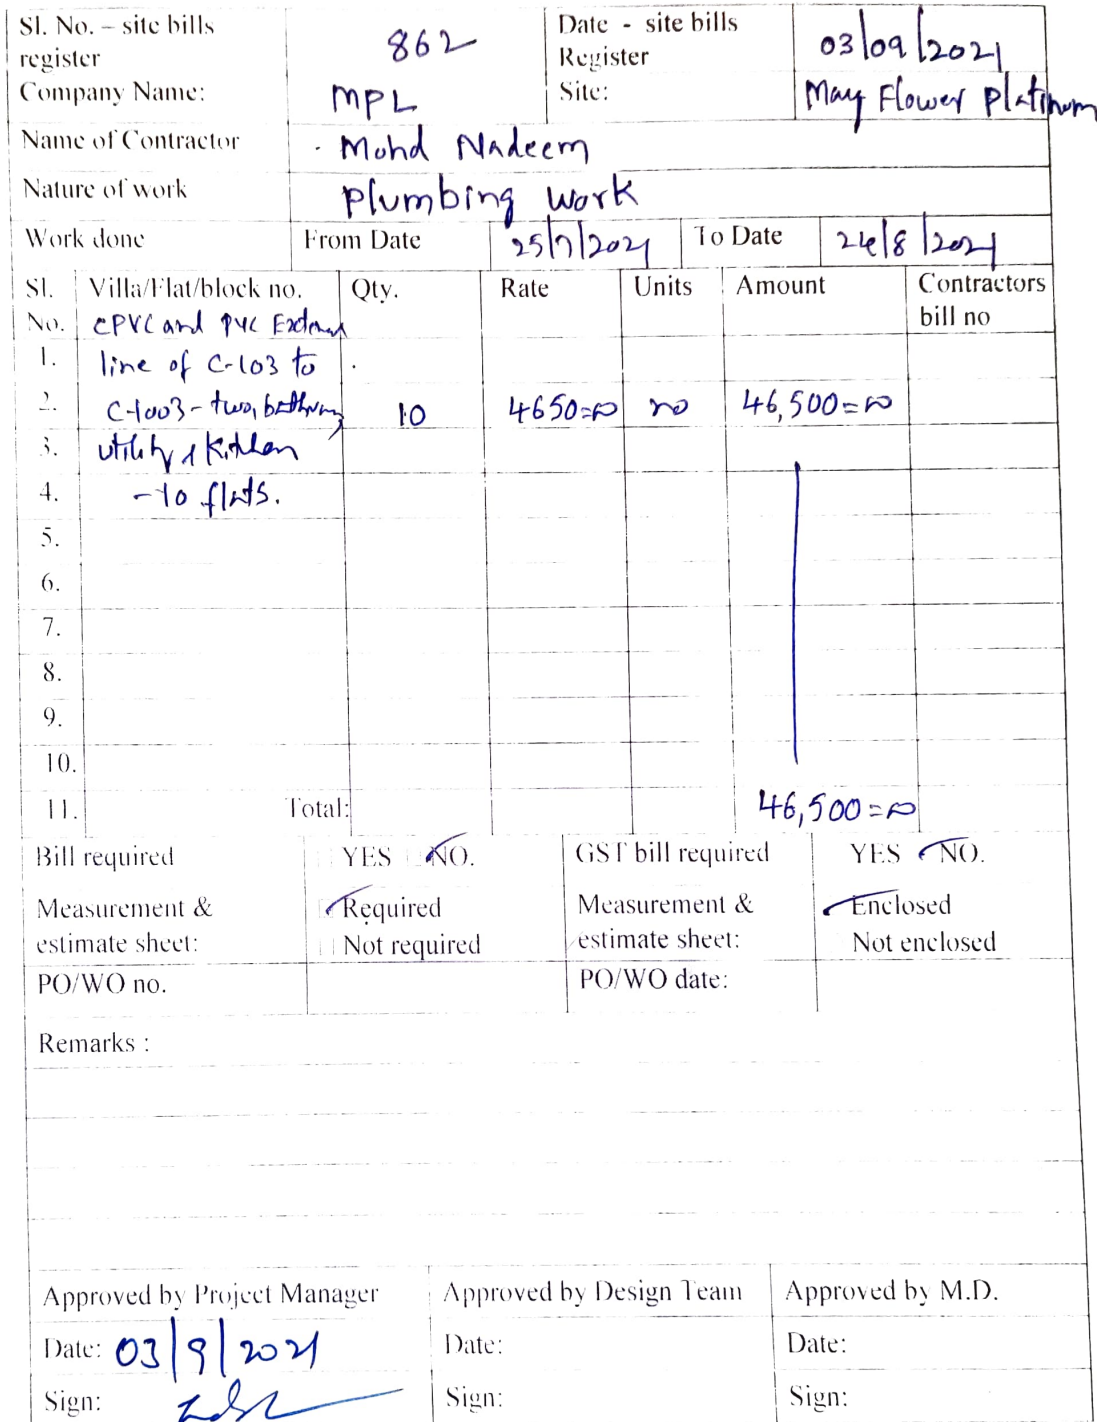 Sl. No. – site bills register 862 Date - site bills Register 03/09/2021
Company Name: MPL Site: May Flower Platinum
Name of Contractor Mohd Nadeem
Nature of work Plumbing work
Work done From Date 25/7/2021 To Date 24/8/2021
Sl. No. Villa/Flat/block no. Qty. Rate Units Amount Contractors bill no
CPVC and PVC External
1. line of C-103 to
2. C-1003 - two, bathroom, 10 4650=00 no 46,500=00
3. utility & Kitchen
4. -10 flats.
5.
6.
7.
8.
9.
10.
11. Total: 46,500=00
Bill required YES NO. GST bill required YES NO.
Measurement & estimate sheet: Required Not required Measurement & estimate sheet: Enclosed Not enclosed
PO/WO no. PO/WO date:
Remarks :
Approved by Project Manager Approved by Design Team Approved by M.D.
Date: 03/9/2021 Date: Date:
Sign: Sign: Sign: